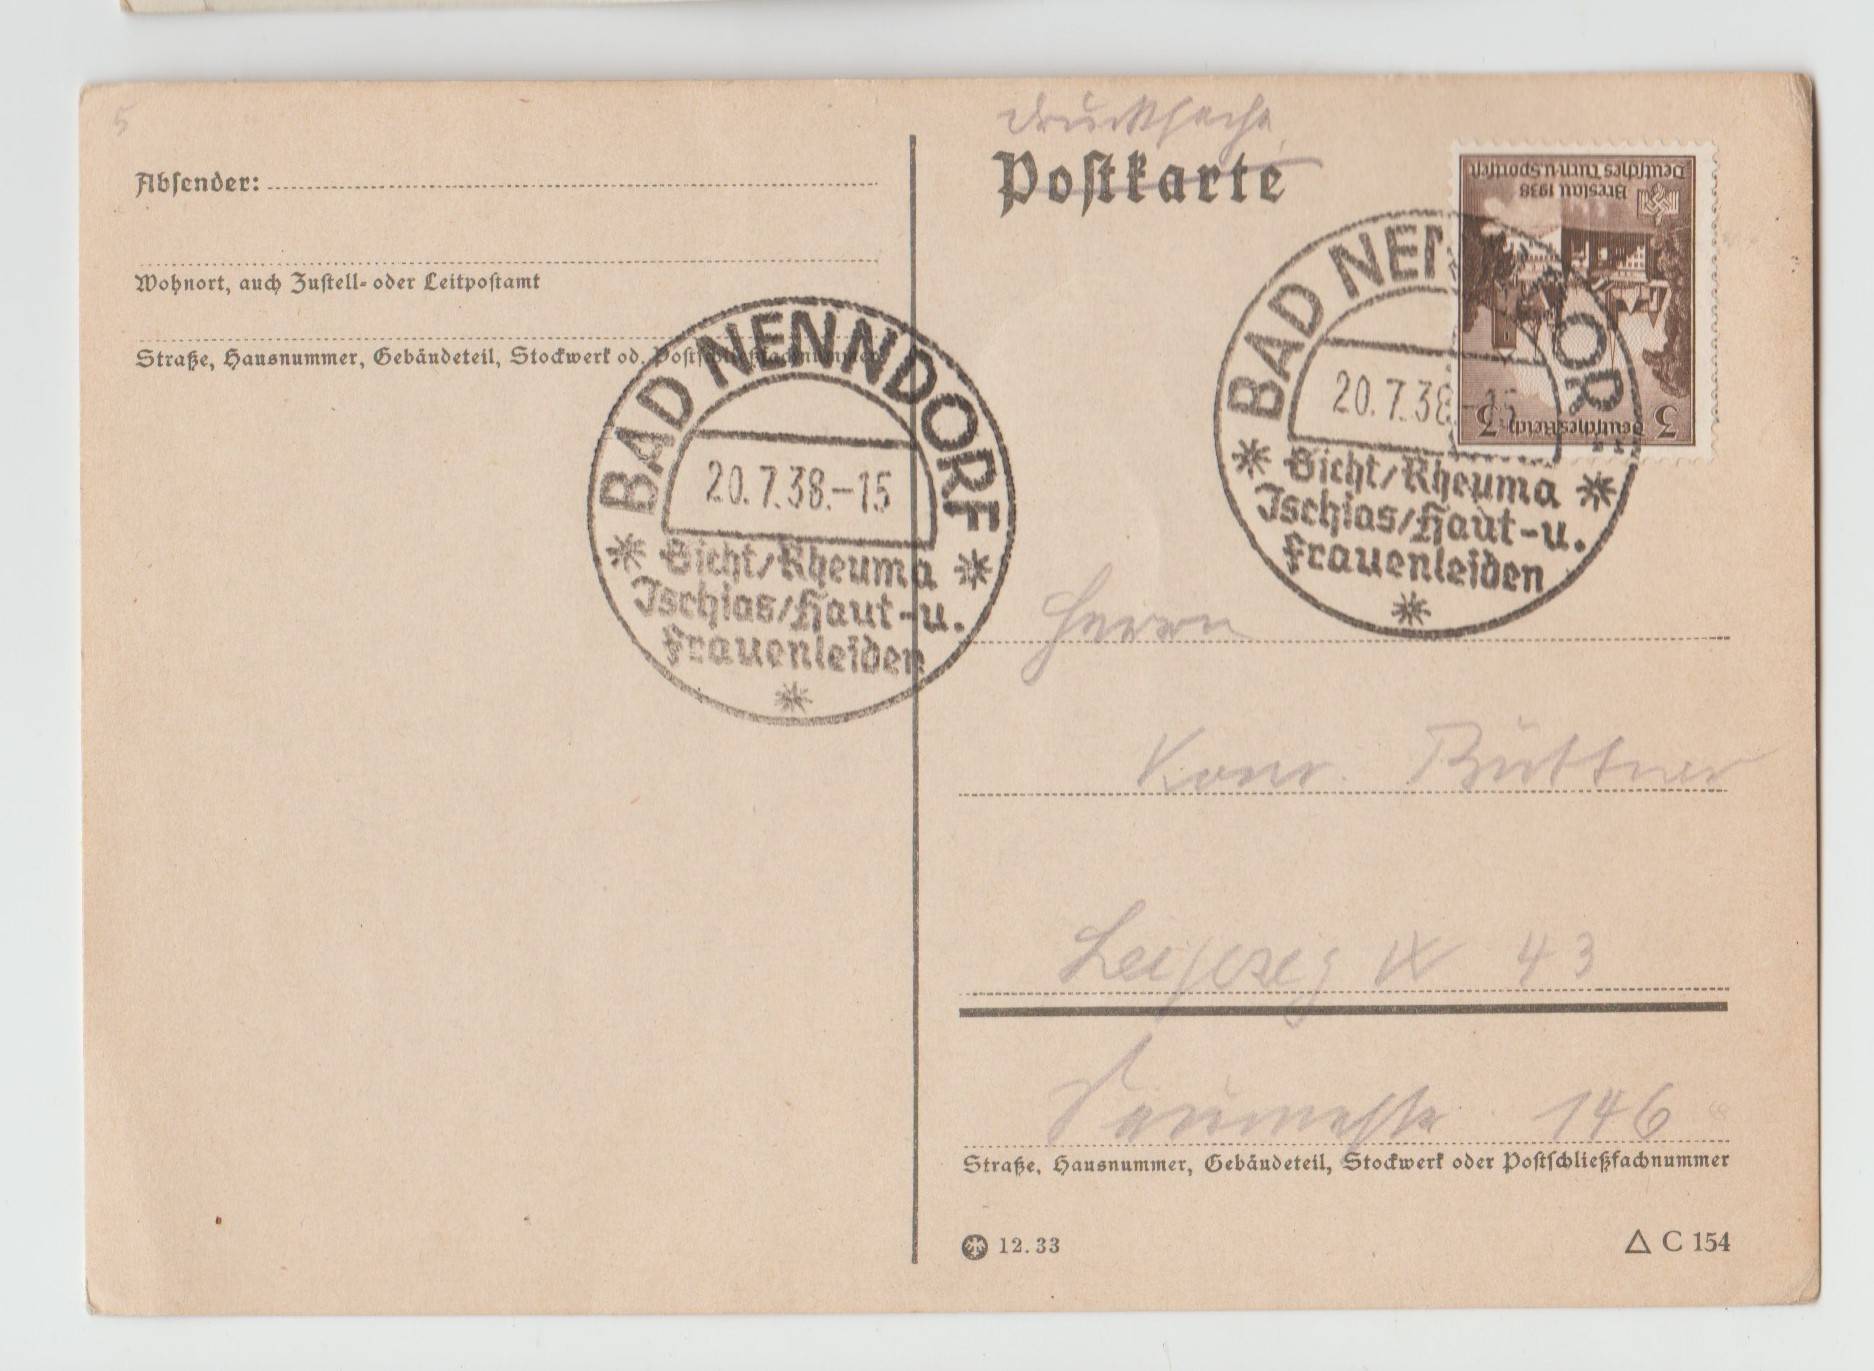 5
Drucksache
Postkarte
Absender:
Wohnort, auch Zustell- oder Leitpostamt
Straße, Hausnummer, Gebäudeteil, Stockwerk od. Postschließfachnummer
BAD NENNDORF
20.7.38.-15
Gicht/Rheuma
Ischias/Haut-u.
Frauenleiden
Deutsches Turn-u. Sportfest
Breslau 1938
3 Deutsches Reich 3
BAD NENNDORF
20.7.38.-15
Gicht/Rheuma
Ischias/Haut-u.
Frauenleiden
Herrn
Konr. Büttner
Leipzig W 43
146
Straße, Hausnummer, Gebäudeteil, Stockwerk oder Postschließfachnummer
12.33
△ C 154